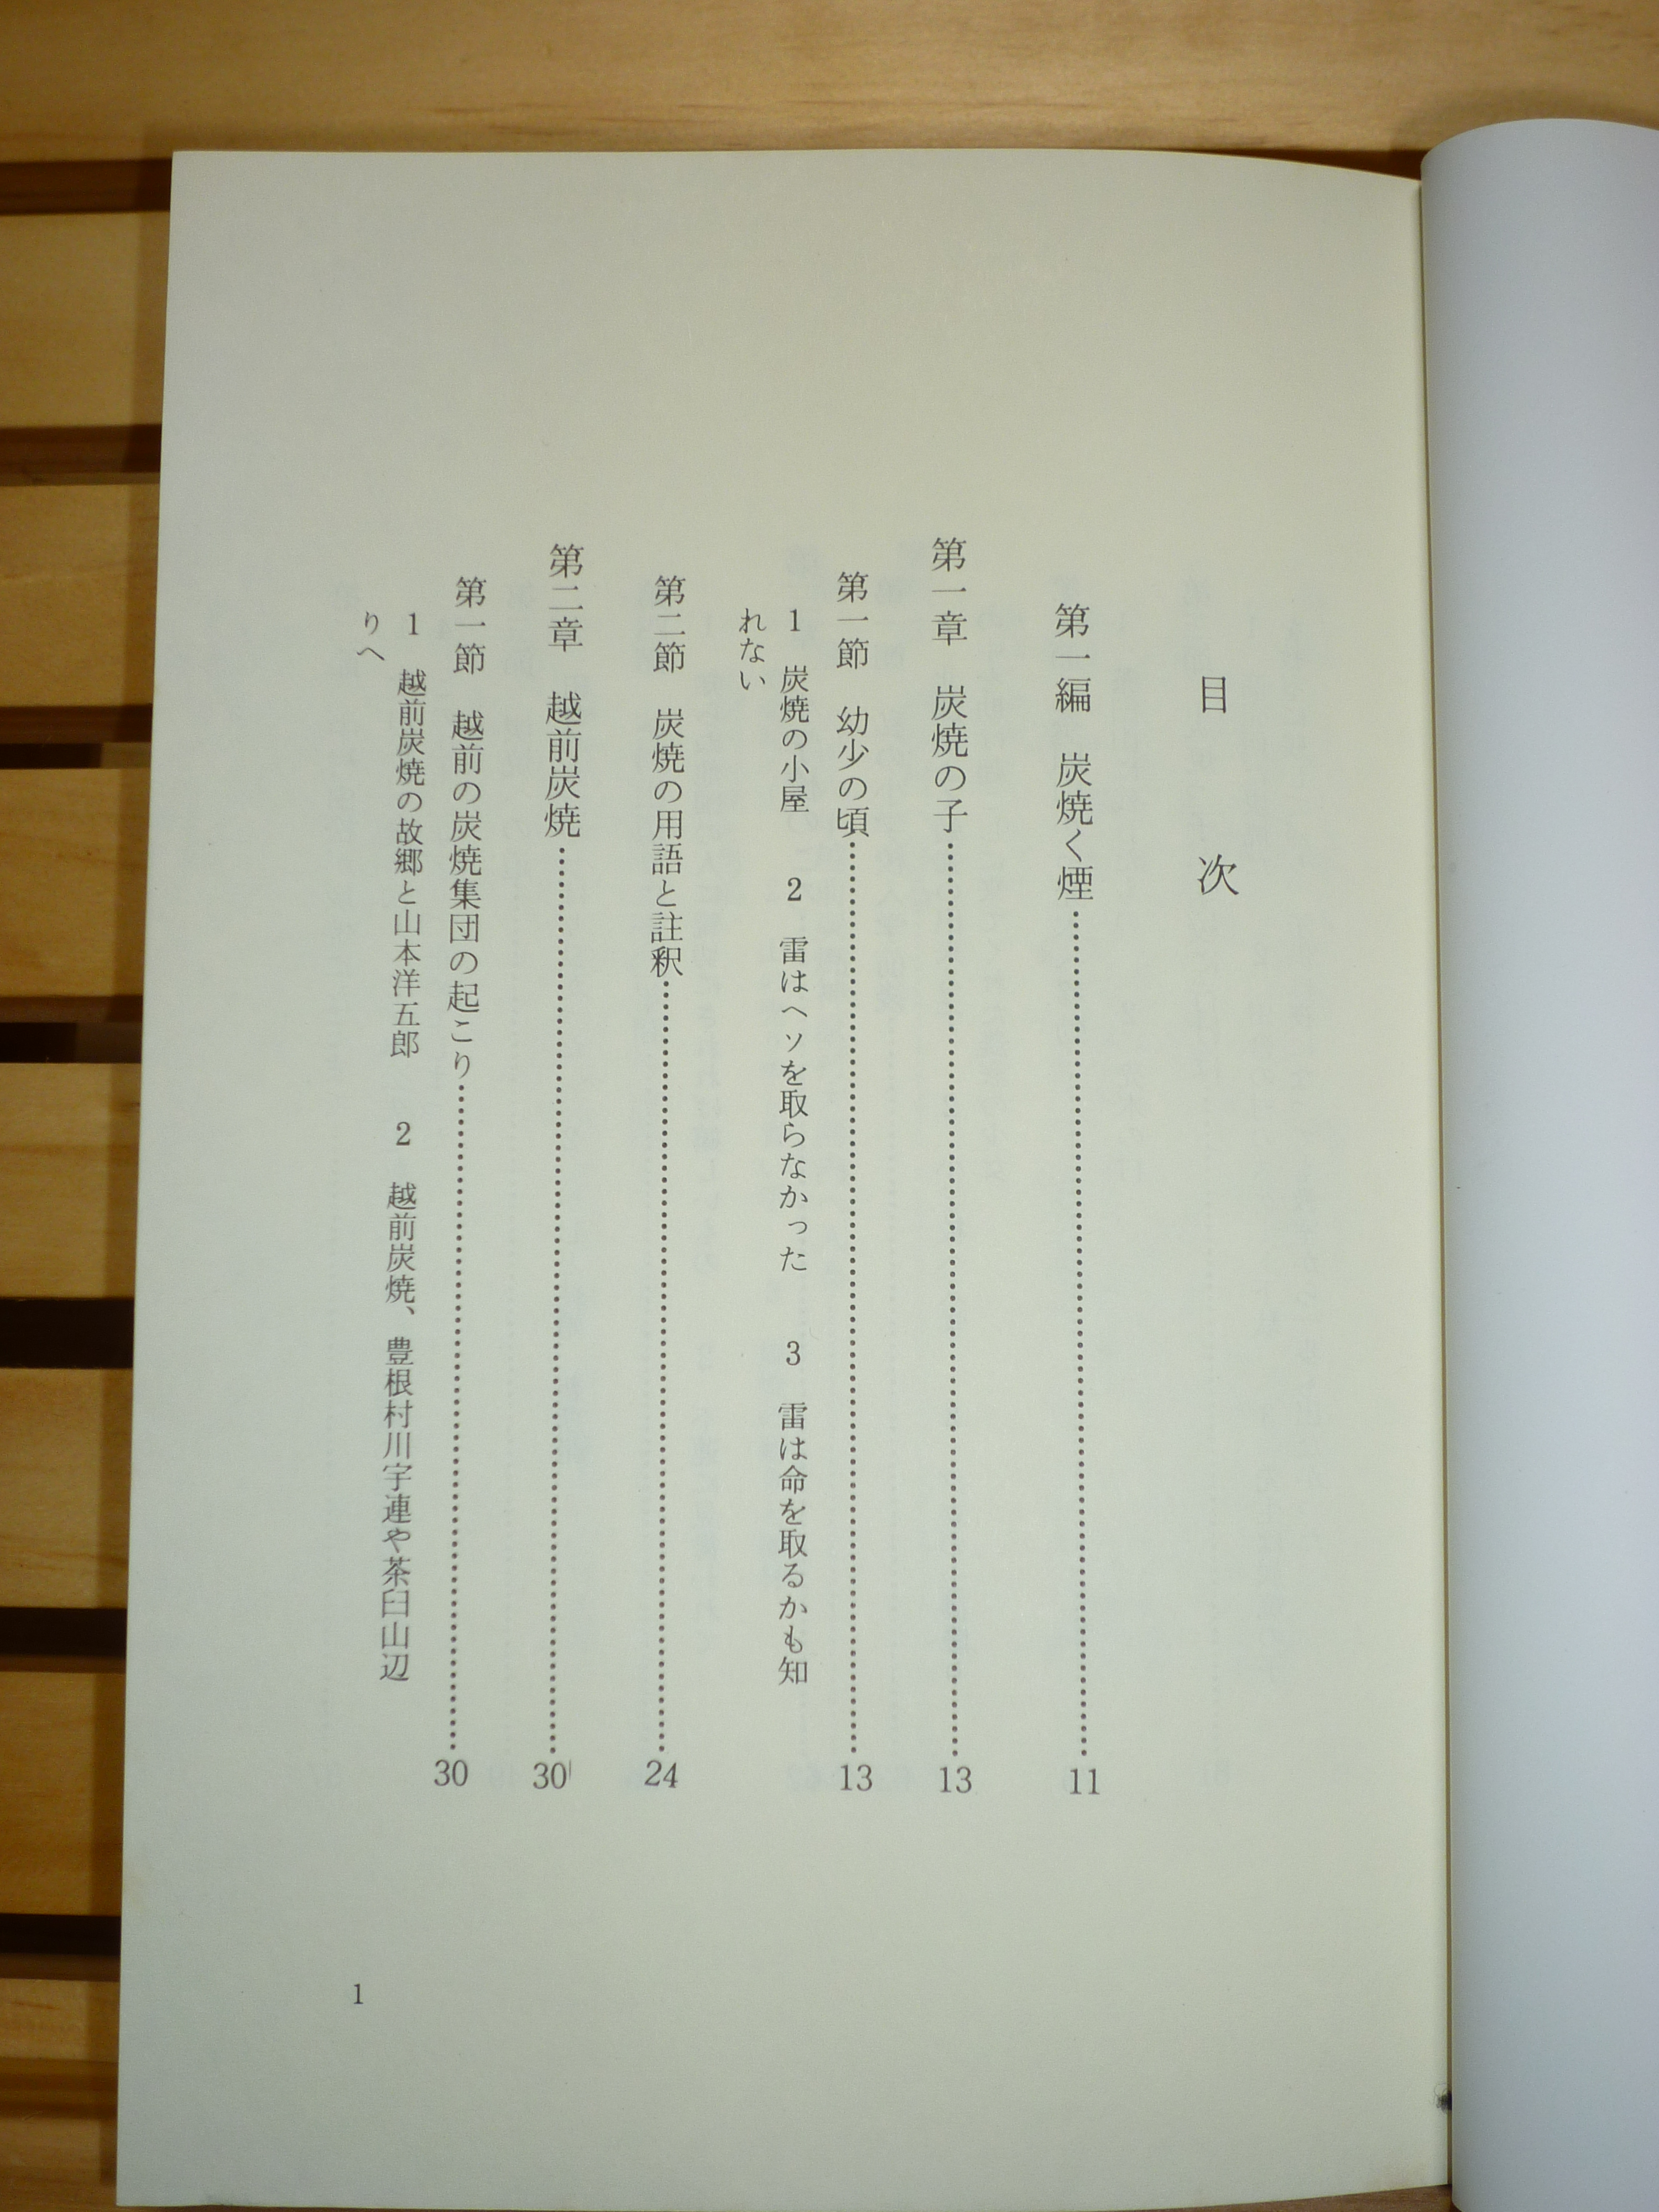 目　次
第一編　炭焼く煙……………………11
第一章　炭焼の子……………………13
第一節　幼少の頃……………………13
1　炭焼の小屋　2　雷はヘソを取らなかった　3　雷は命を取るかも知
れない
第二節　炭焼の用語と註釈……………………24
第二章　越前炭焼……………………30
第一節　越前の炭焼集団の起こり……………………30
1　越前炭焼の故郷と山本洋五郎　2　越前炭焼、豊根村川宇連や茶臼山辺
りへ
1